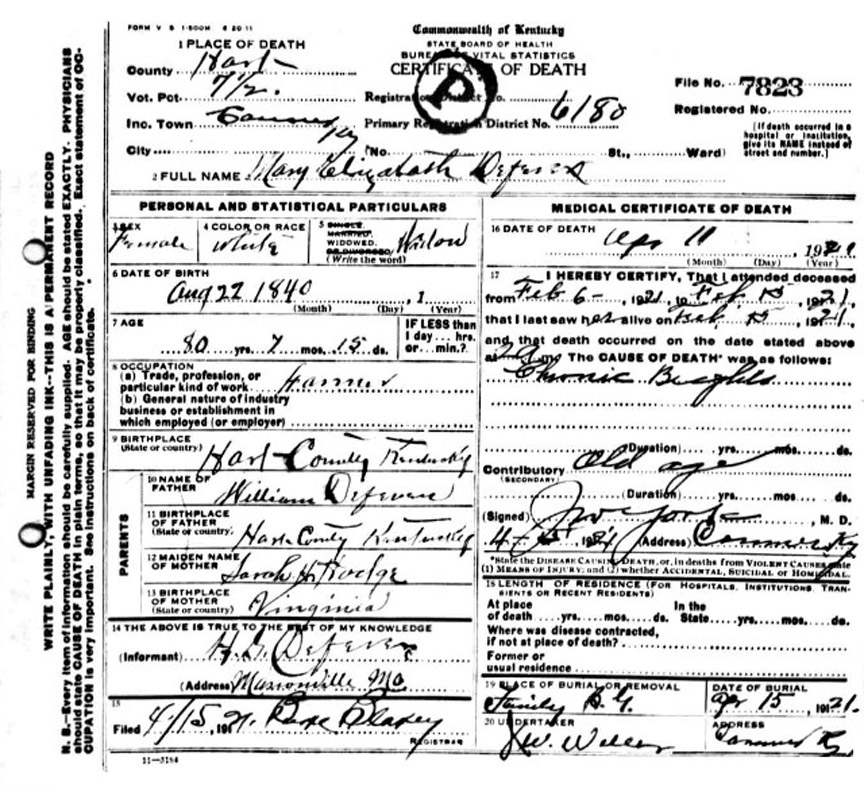 FORM V S 1-500M 6 20 11
Commonwealth of Kentucky
STATE BOARD OF HEALTH
BUREAU OF VITAL STATISTICS
CERTIFICATE OF DEATH
P
1 PLACE OF DEATH
County Hart
Vot. Pct. 7 1/2
Inc. Town Canmer Ky
City
Registration District No.
Primary Registration District No. 6180
(No. St., Ward)
File No. 7823
Registered No.
(If death occurred in a hospital or institution, give its NAME instead of street and number.)
2 FULL NAME Mary Elizabeth Defever
PERSONAL AND STATISTICAL PARTICULARS
3 SEX Female
4 COLOR OR RACE White
5 SINGLE, MARRIED, WIDOWED, OR DIVORCED (Write the word) Widow
6 DATE OF BIRTH
Aug 22 1840 , 1
(Month) (Day) (Year)
7 AGE
80 yrs. 7 mos. 15 ds.
IF LESS than 1 day ... hrs. or ... min.?
8 OCCUPATION
(a) Trade, profession, or particular kind of work Farmer
(b) General nature of industry business or establishment in which employed (or employer)
9 BIRTHPLACE
(State or country) Hart County Kentucky
PARENTS
10 NAME OF FATHER William Defever
11 BIRTHPLACE OF FATHER
(State or country) Hart County Kentucky
12 MAIDEN NAME OF MOTHER Sarah
13 BIRTHPLACE OF MOTHER
(State or country) Virginia
14 THE ABOVE IS TRUE TO THE BEST OF MY KNOWLEDGE
(Informant) H. G. Defever
(Address) Marionville Mo
15
Filed 4/15, 191 21.
REGISTRAR
11-3184
MEDICAL CERTIFICATE OF DEATH
16 DATE OF DEATH Apr 11 1921
(Month) (Day) (Year)
17 I HEREBY CERTIFY, That I attended deceased
from Feb 6 - , 1921, to Feb 15, 1921,
that I last saw her alive on Feb 15, 1921,
and that death occurred on the date stated above
at m. The CAUSE OF DEATH* was as follows:
Chronic Brights
(Duration) yrs. mos. ds.
Contributory Old age
(SECONDARY)
(Duration) yrs. mos. ds.
(Signed) York, M. D.
4-15 1921 (Address) Canmer Ky
*State the DISEASE CAUSING DEATH, or, in deaths from VIOLENT CAUSES state
(1) MEANS OF INJURY; and (2) whether ACCIDENTAL, SUICIDAL or HOMICIDAL.
18 LENGTH OF RESIDENCE (FOR HOSPITALS, INSTITUTIONS, TRANSIENTS OR RECENT RESIDENTS)
At place of death yrs. mos. ds. In the State yrs. mos. ds.
Where was disease contracted, if not at place of death?
Former or usual residence
19 PLACE OF BURIAL OR REMOVAL
Family B. G.
DATE OF BURIAL
Apr 15, 1921.
20 UNDERTAKER
ADDRESS
Canmer Ky
MARGIN RESERVED FOR BINDING
WRITE PLAINLY, WITH UNFADING INK--THIS IS A PERMANENT RECORD
N. B.--Every item of information should be carefully supplied. AGE should be stated EXACTLY. PHYSICIANS
should state CAUSE OF DEATH in plain terms, so that it may be properly classified. Exact statement of OC-
CUPATION is very important. See instructions on back of certificate.